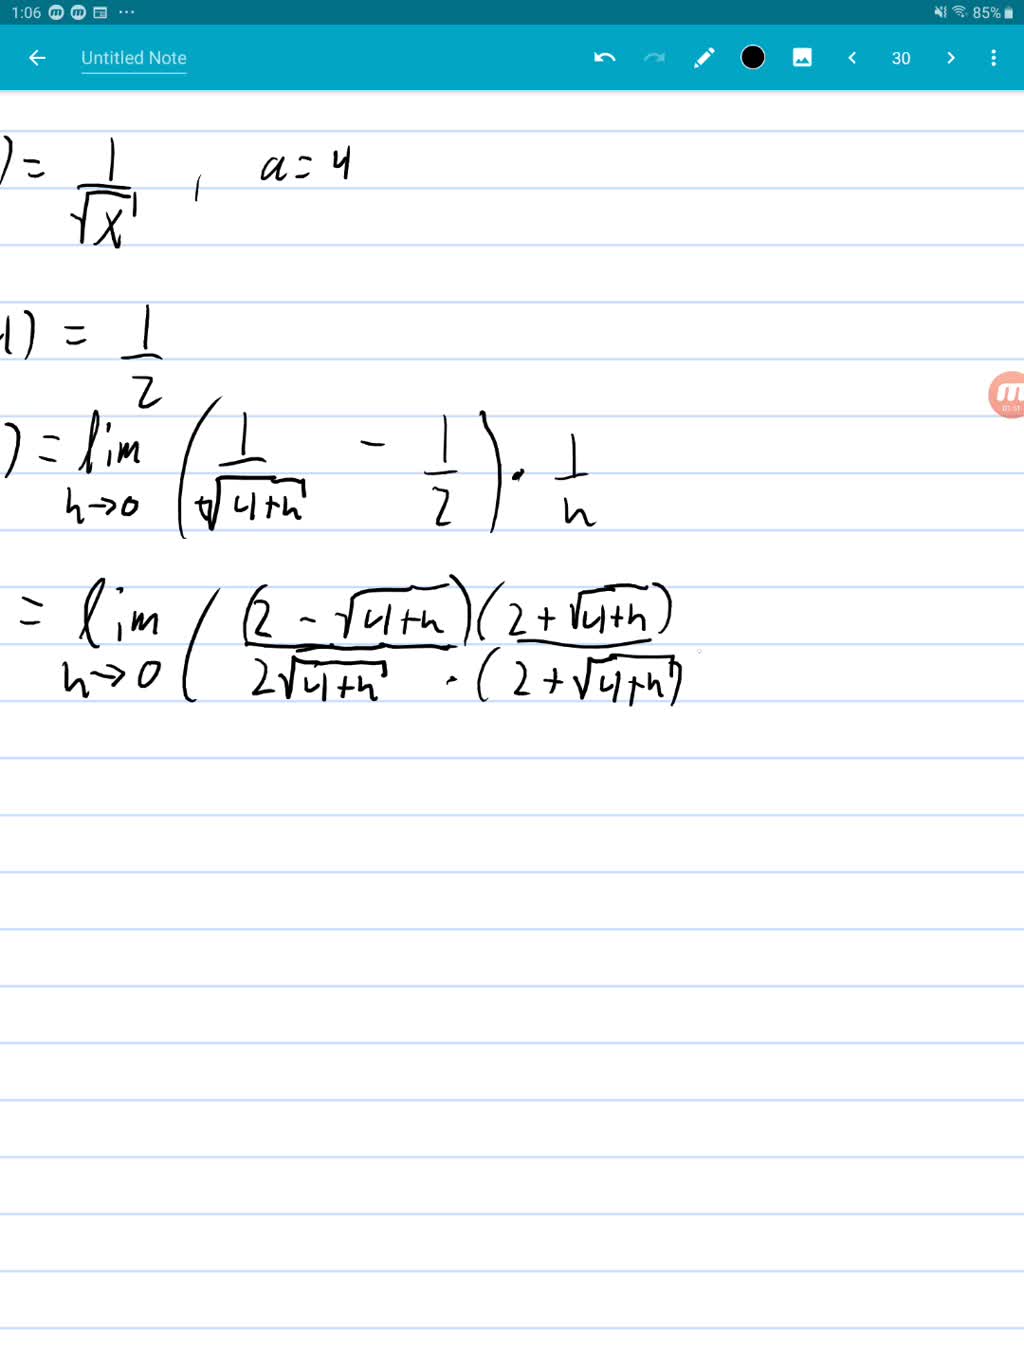 1:06 85%
Untitled Note 30
) = 1/√x , a = 4
4) = 1/2
) = lim h→0 (1/√(4+h) - 1/2) · 1/h
= lim h→0 ( (2 - √(4+h)) (2 + √(4+h)) / 2√(4+h) · (2 + √(4+h))